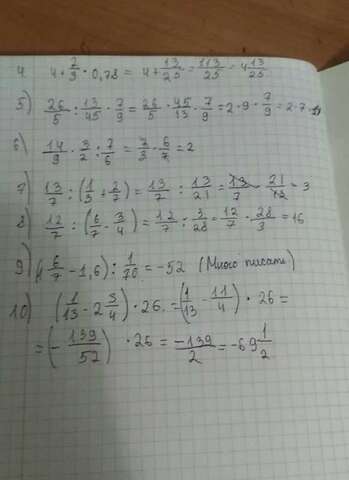 4. 4+2/9 · 0,78 = 4+13/25 = 113/25 = 4 13/25
5) 26/5 : 13/45 · 7/9 = 26/5 · 45/13 · 7/9 = 2·9 · 7/9 = 2·7
6) 14/9 · 3/2 : 7/6 = 7/3 · 6/7 = 2
7) 13/7 : (1/3 + 2/7) = 13/7 : 13/21 = 13/7 · 21/13 = 3
8) 12/7 : (6/7 - 3/4) = 12/7 : 3/28 = 12/7 · 28/3 = 16
9) (6/7 - 1,6) : 1/70 = -52 (Много писать)
10) (1/13 - 2 3/4) · 26 = (1/13 - 11/4) · 26 =
= (- 139/52) · 26 = -139/2 = -69 1/2